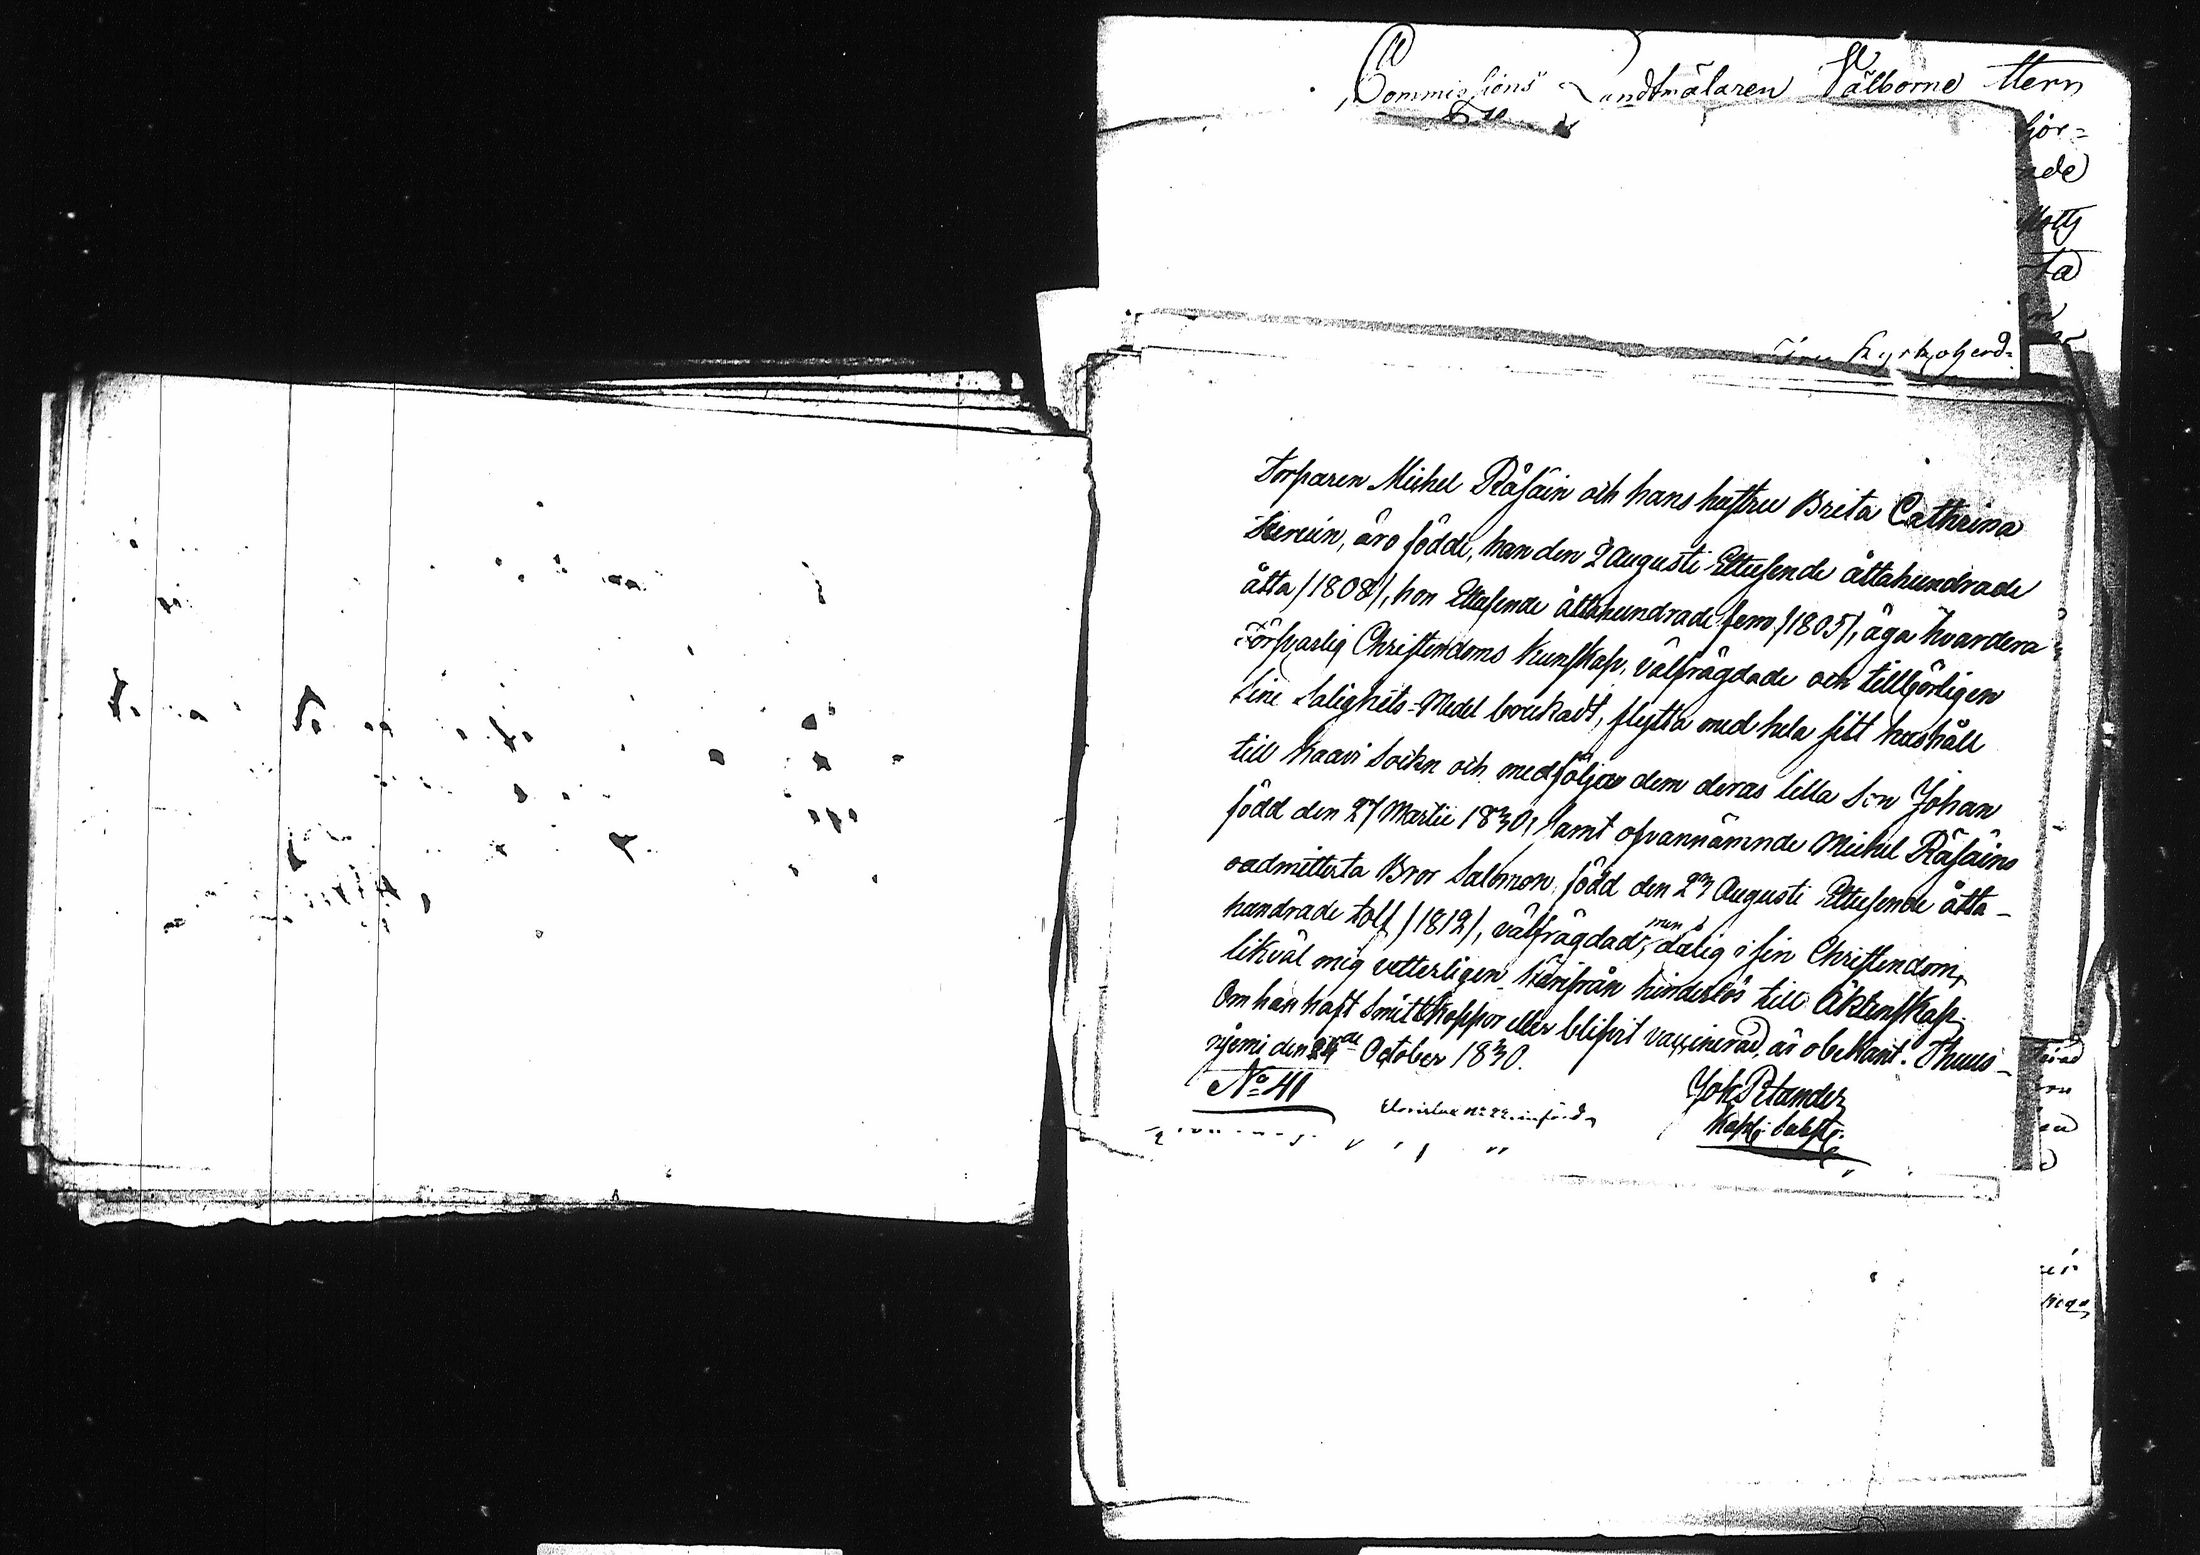 Commissions Landtmälaren Wälborne Herr
för=
nde
ta
Kyrkoherd=
Torparen Michel Räsäin och hans hustru Brita Cathrina
äro födde, han den 2 Augusti Ettusende åttahundrade
åtta /1808/, hon Ettusende åttahundrade fem /1805/, äga hvardera
Christendoms kunskap, välfrägdade och tillbörligen
sine Salighets-Medel brukadt, flytta med hela sitt hushåll
till Kaavi Sockn och medföljer dem deras lilla Son Johan
född den 27 Martii 1830, samt ofvannämnde Michel Räsäins
oadmitterta Bror Salomon, född den 23 Augusti Ettusende åtta-
hundrade tolf /1812/, välfrägdad, men dålig i sin Christendom,
likväl mig vetterligen härifrån hinderlös till Äktenskap.
Om han haft Smittkoppor eller blifvit vaccinerad, är obekant. Thuus-
njemi den 24de October 1830.
No 41
Joh. Petander
Kapl. Substi.